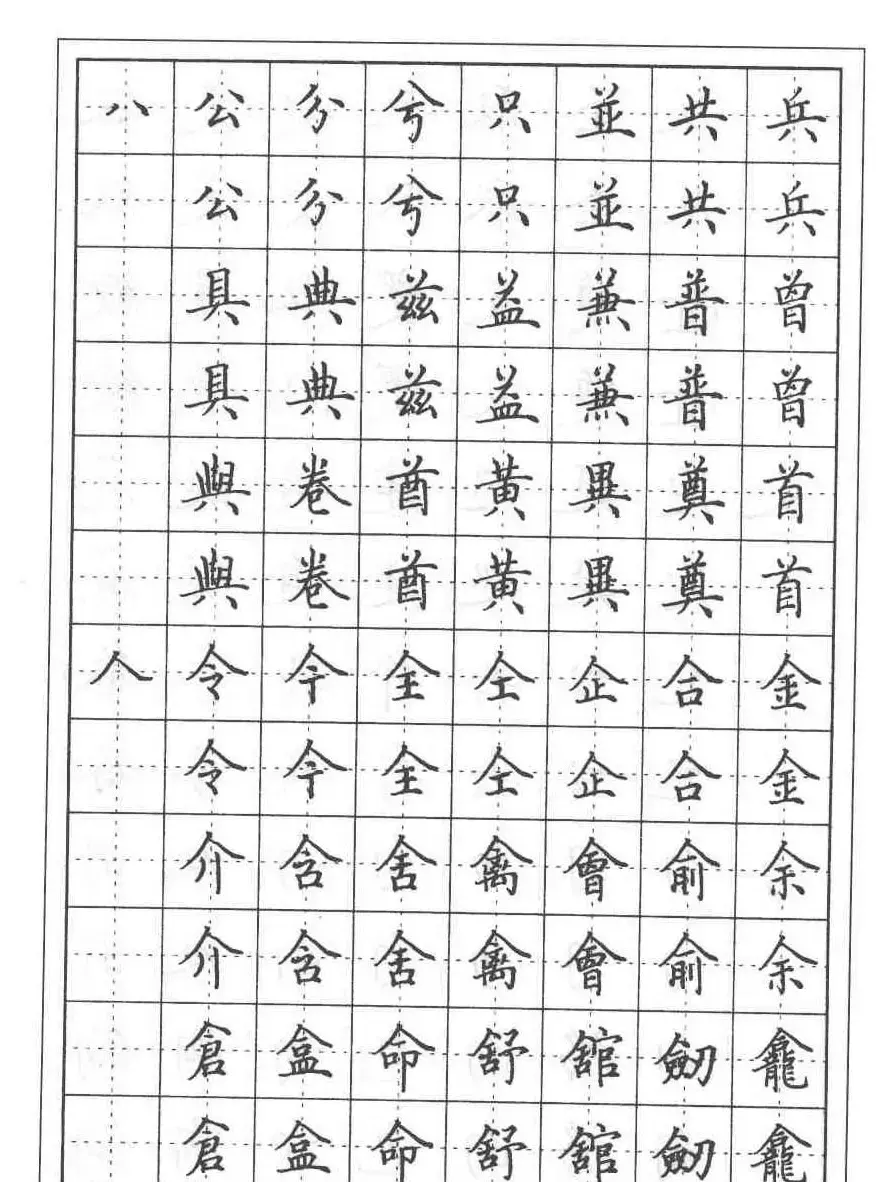 八公分兮只並共兵
公分兮只並共兵
具典茲益兼普曾
具典茲益兼普曾
與卷酋黃異奠首
與卷酋黃異奠首
人令今全仝企合金
令今全仝企合金
介含舍禽會俞余
介含舍禽會俞余
倉盒命舒舘劒龕
倉盒命舒舘劒龕